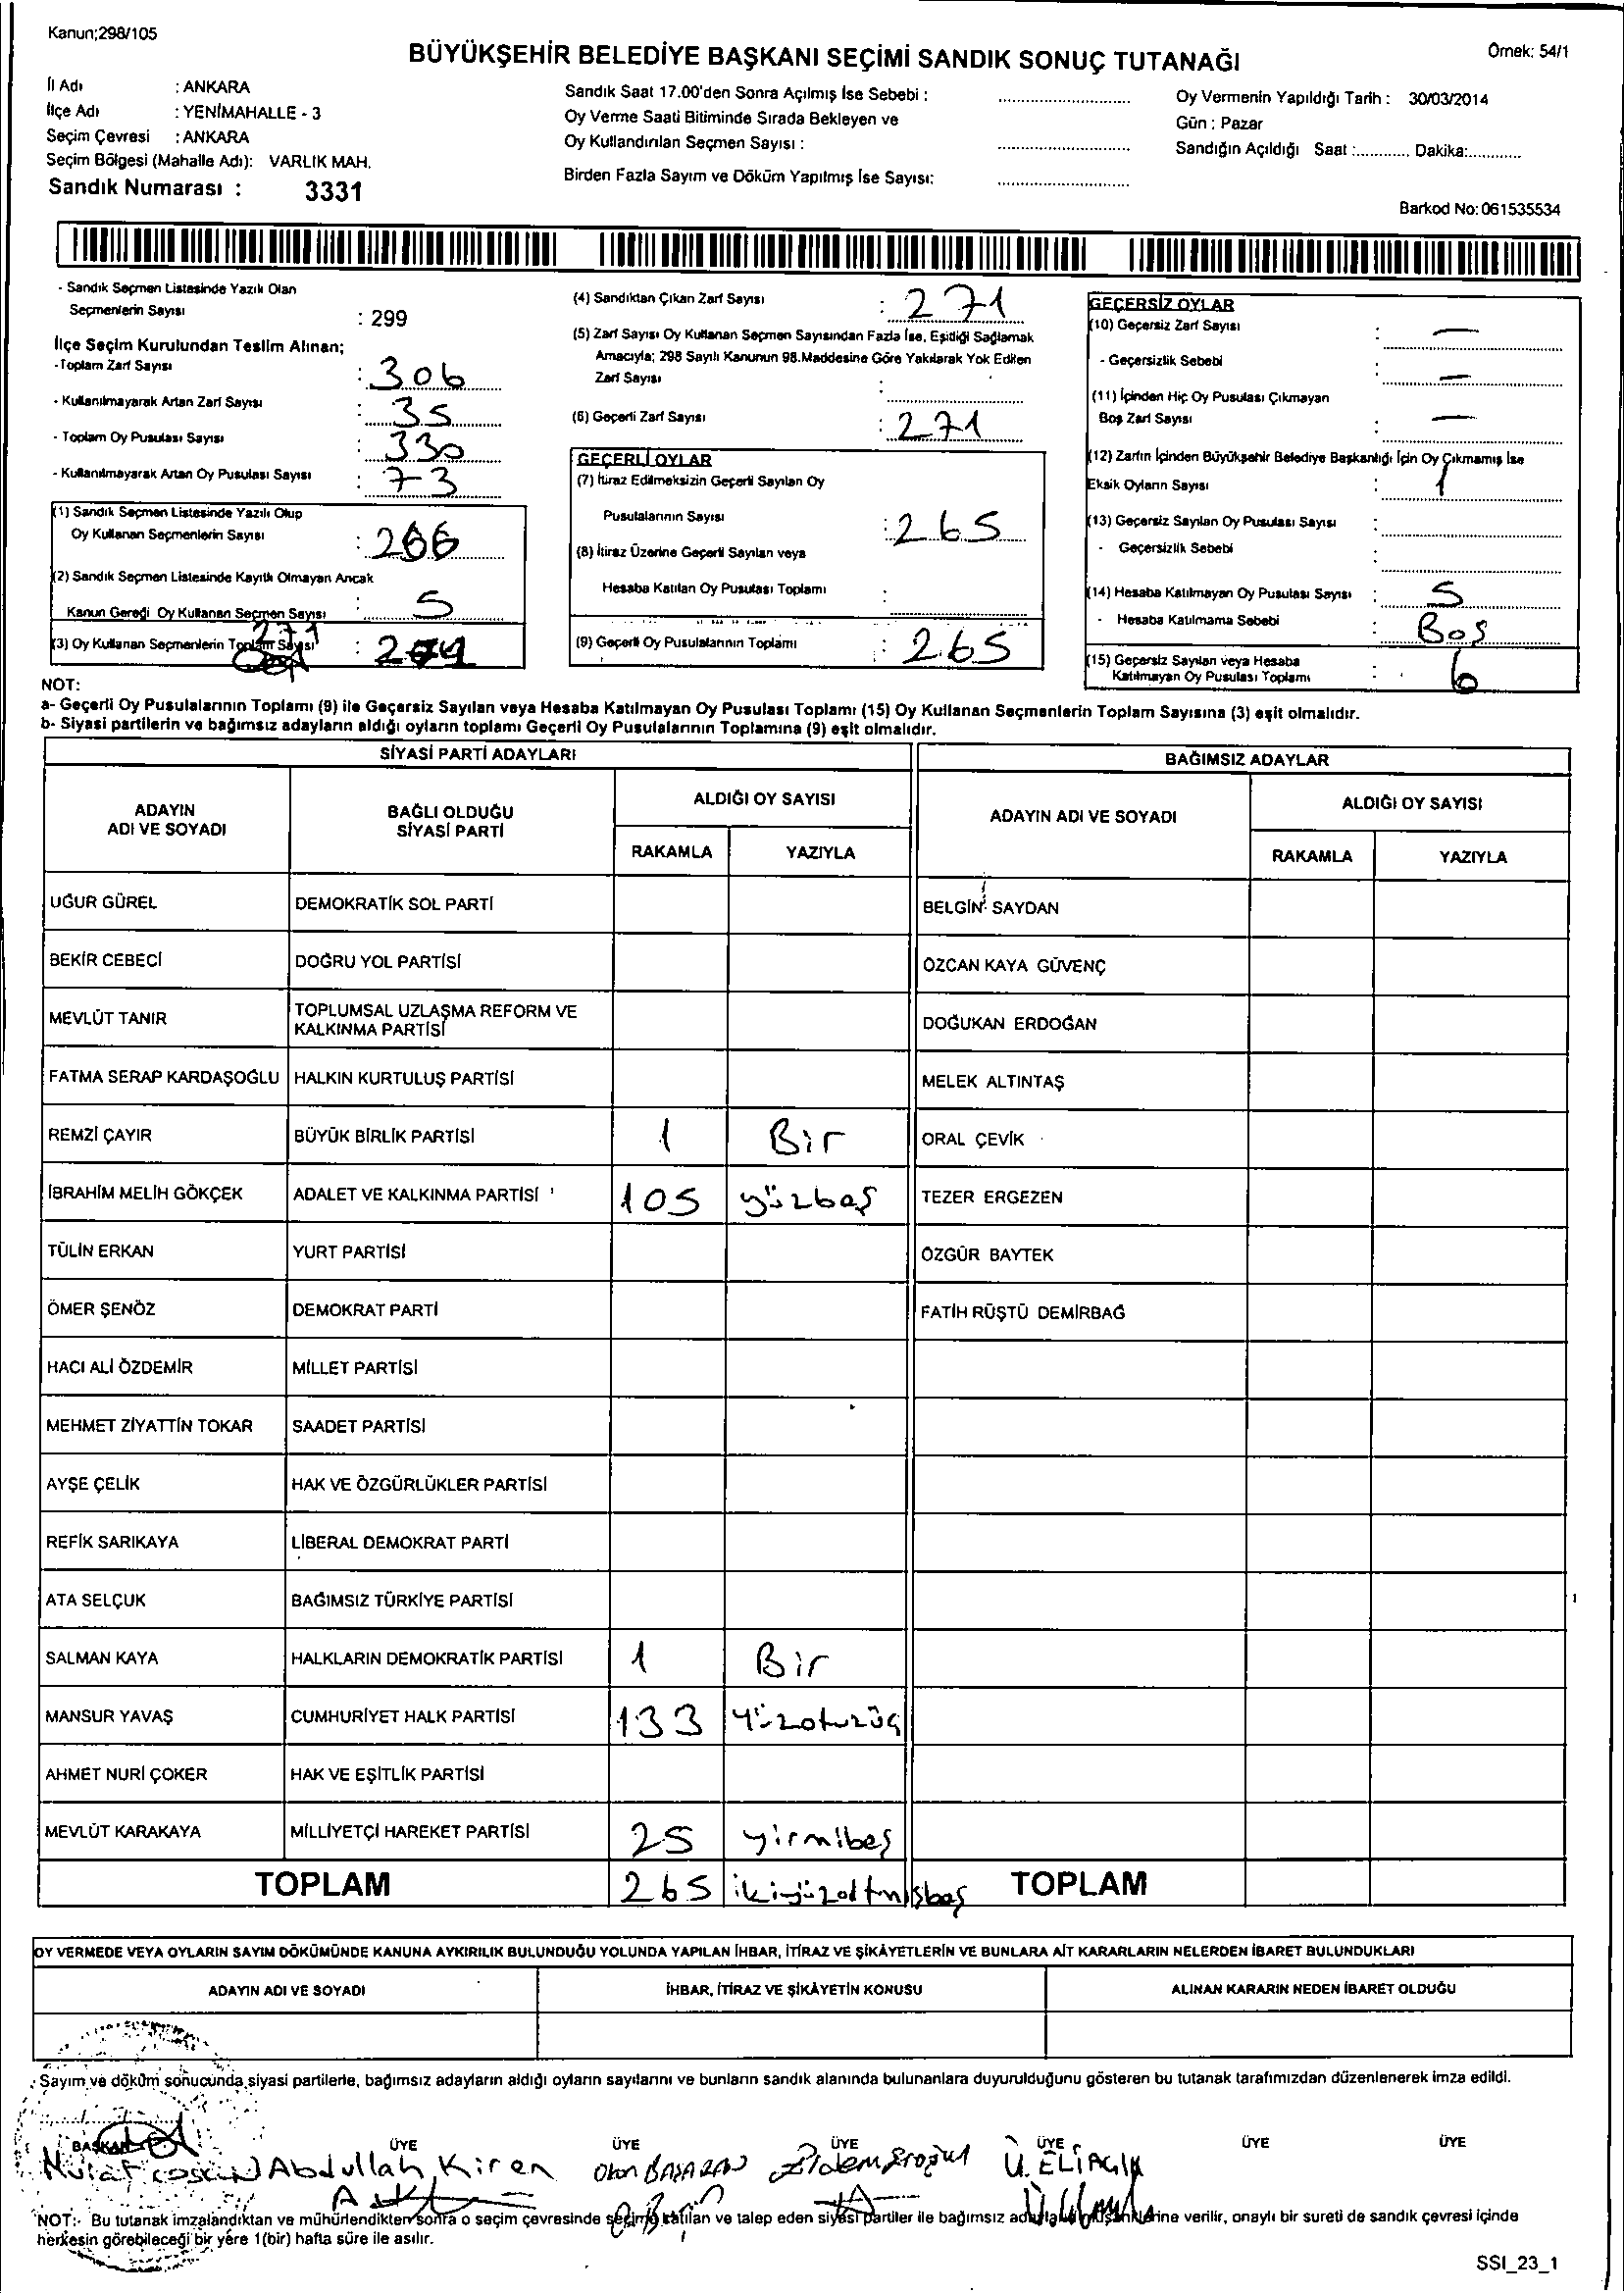 Kanun;298/105
BÜYÜKŞEHİR BELEDİYE BAŞKANI SEÇİMİ SANDIK SONUÇ TUTANAĞI
Örnek: 54/1
İl Adı : ANKARA
İlçe Adı : YENİMAHALLE - 3
Seçim Çevresi : ANKARA
Seçim Bölgesi (Mahalle Adı): VARLIK MAH.
Sandık Numarası : 3331
Sandık Saat 17.00'den Sonra Açılmış İse Sebebi :
Oy Verme Saati Bitiminde Sırada Bekleyen ve
Oy Kullandırılan Seçmen Sayısı :
Birden Fazla Sayım ve Döküm Yapılmış İse Sayısı:
Oy Vermenin Yapıldığı Tarih : 30/03/2014
Gün : Pazar
Sandığın Açıldığı Saat :............ Dakika:............
Barkod No: 061535534
- Sandık Seçmen Listesinde Yazılı Olan
Seçmenlerin Sayısı : 299
İlçe Seçim Kurulundan Teslim Alınan;
- Toplam Zarf Sayısı : 306
- Kullanılmayarak Artan Zarf Sayısı : 35
- Toplam Oy Pusulası Sayısı : 330
- Kullanılmayarak Artan Oy Pusulası Sayısı : 73
(1) Sandık Seçmen Listesinde Yazılı Olup
Oy Kullanan Seçmenlerin Sayısı : 266
(2) Sandık Seçmen Listesinde Kayıtlı Olmayan Ancak
Kanun Gereği Oy Kullanan Seçmen Sayısı : 5
271
(3) Oy Kullanan Seçmenlerin Toplam Sayısı :
(4) Sandıktan Çıkan Zarf Sayısı : 271
(5) Zarf Sayısı Oy Kullanan Seçmen Sayısından Fazla İse, Eşitliği Sağlamak
Amacıyla; 298 Sayılı Kanunun 98.Maddesine Göre Yakılarak Yok Edilen
Zarf Sayısı :
(6) Geçerli Zarf Sayısı : 271
GEÇERLİ OYLAR
(7) İtiraz Edilmeksizin Geçerli Sayılan Oy
Pusulalarının Sayısı : 265
(8) İtiraz Üzerine Geçerli Sayılan veya
Hesaba Katılan Oy Pusulası Toplamı :
(9) Geçerli Oy Pusulalarının Toplamı : 265
GEÇERSİZ OYLAR
(10) Geçersiz Zarf Sayısı : —
- Geçersizlik Sebebi : —
(11) İçinden Hiç Oy Pusulası Çıkmayan
Boş Zarf Sayısı : —
(12) Zarfın İçinden Büyükşehir Belediye Başkanlığı İçin Oy Çıkmamış İse
Eksik Oyların Sayısı : 1
(13) Geçersiz Sayılan Oy Pusulası Sayısı :
- Geçersizlik Sebebi :
(14) Hesaba Katılmayan Oy Pusulası Sayısı : 5
- Hesaba Katılmama Sebebi : Boş
(15) Geçersiz Sayılan veya Hesaba
Katılmayan Oy Pusulası Toplamı : 6
NOT:
a- Geçerli Oy Pusulalarının Toplamı (9) ile Geçersiz Sayılan veya Hesaba Katılmayan Oy Pusulası Toplamı (15) Oy Kullanan Seçmenlerin Toplam Sayısına (3) eşit olmalıdır.
b- Siyasi partilerin ve bağımsız adayların aldığı oyların toplamı Geçerli Oy Pusulalarının Toplamına (9) eşit olmalıdır.
SİYASİ PARTİ ADAYLARI BAĞIMSIZ ADAYLAR
ADAYIN ADI VE SOYADI BAĞLI OLDUĞU SİYASİ PARTİ ALDIĞI OY SAYISI ADAYIN ADI VE SOYADI ALDIĞI OY SAYISI
RAKAMLA YAZIYLA RAKAMLA YAZIYLA
UĞUR GÜREL DEMOKRATİK SOL PARTİ BELGİN SAYDAN
BEKİR CEBECİ DOĞRU YOL PARTİSİ ÖZCAN KAYA GÜVENÇ
MEVLÜT TANIR TOPLUMSAL UZLAŞMA REFORM VE KALKINMA PARTİSİ DOĞUKAN ERDOĞAN
FATMA SERAP KARDAŞOĞLU HALKIN KURTULUŞ PARTİSİ MELEK ALTINTAŞ
REMZİ ÇAYIR BÜYÜK BİRLİK PARTİSİ 1 Bir ORAL ÇEVİK
İBRAHİM MELİH GÖKÇEK ADALET VE KALKINMA PARTİSİ 105 yüzbeş TEZER ERGEZEN
TÜLİN ERKAN YURT PARTİSİ ÖZGÜR BAYTEK
ÖMER ŞENÖZ DEMOKRAT PARTİ FATİH RÜŞTÜ DEMİRBAĞ
HACI ALİ ÖZDEMİR MİLLET PARTİSİ
MEHMET ZİYATTİN TOKAR SAADET PARTİSİ
AYŞE ÇELİK HAK VE ÖZGÜRLÜKLER PARTİSİ
REFİK SARIKAYA LİBERAL DEMOKRAT PARTİ
ATA SELÇUK BAĞIMSIZ TÜRKİYE PARTİSİ
SALMAN KAYA HALKLARIN DEMOKRATİK PARTİSİ 1 Bir
MANSUR YAVAŞ CUMHURİYET HALK PARTİSİ 133 Yüzotuzüç
AHMET NURİ ÇOKER HAK VE EŞİTLİK PARTİSİ
MEVLÜT KARAKAYA MİLLİYETÇİ HAREKET PARTİSİ 25 yirmibeş
TOPLAM 265 ikiyüzaltmışbeş TOPLAM
OY VERMEDE VEYA OYLARIN SAYIM DÖKÜMÜNDE KANUNA AYKIRILIK BULUNDUĞU YOLUNDA YAPILAN İHBAR, İTİRAZ VE ŞİKÂYETLERİN VE BUNLARA AİT KARARLARIN NELERDEN İBARET BULUNDUKLARI
ADAYIN ADI VE SOYADI İHBAR, İTİRAZ VE ŞİKÂYETİN KONUSU ALINAN KARARIN NEDEN İBARET OLDUĞU
Sayım ve döküm sonucunda siyasi partilerle, bağımsız adayların aldığı oyların sayılarını ve bunların sandık alanında bulunanlara duyurulduğunu gösteren bu tutanak tarafımızdan düzenlenerek imza edildi.
BAŞKAN ÜYE ÜYE ÜYE ÜYE ÜYE ÜYE
Abdullah Kiren BAŞARAN Ü. ELİAÇIK
NOT:- Bu tutanak imzalandıktan ve mühürlendikten sonra o seçim çevresinde seçime katılan ve talep eden siyasi partiler ile bağımsız adayların müşahitlerine verilir, onaylı bir sureti de sandık çevresi içinde
herkesin görebileceği bir yere 1(bir) hafta süre ile asılır.
SSI_23_1